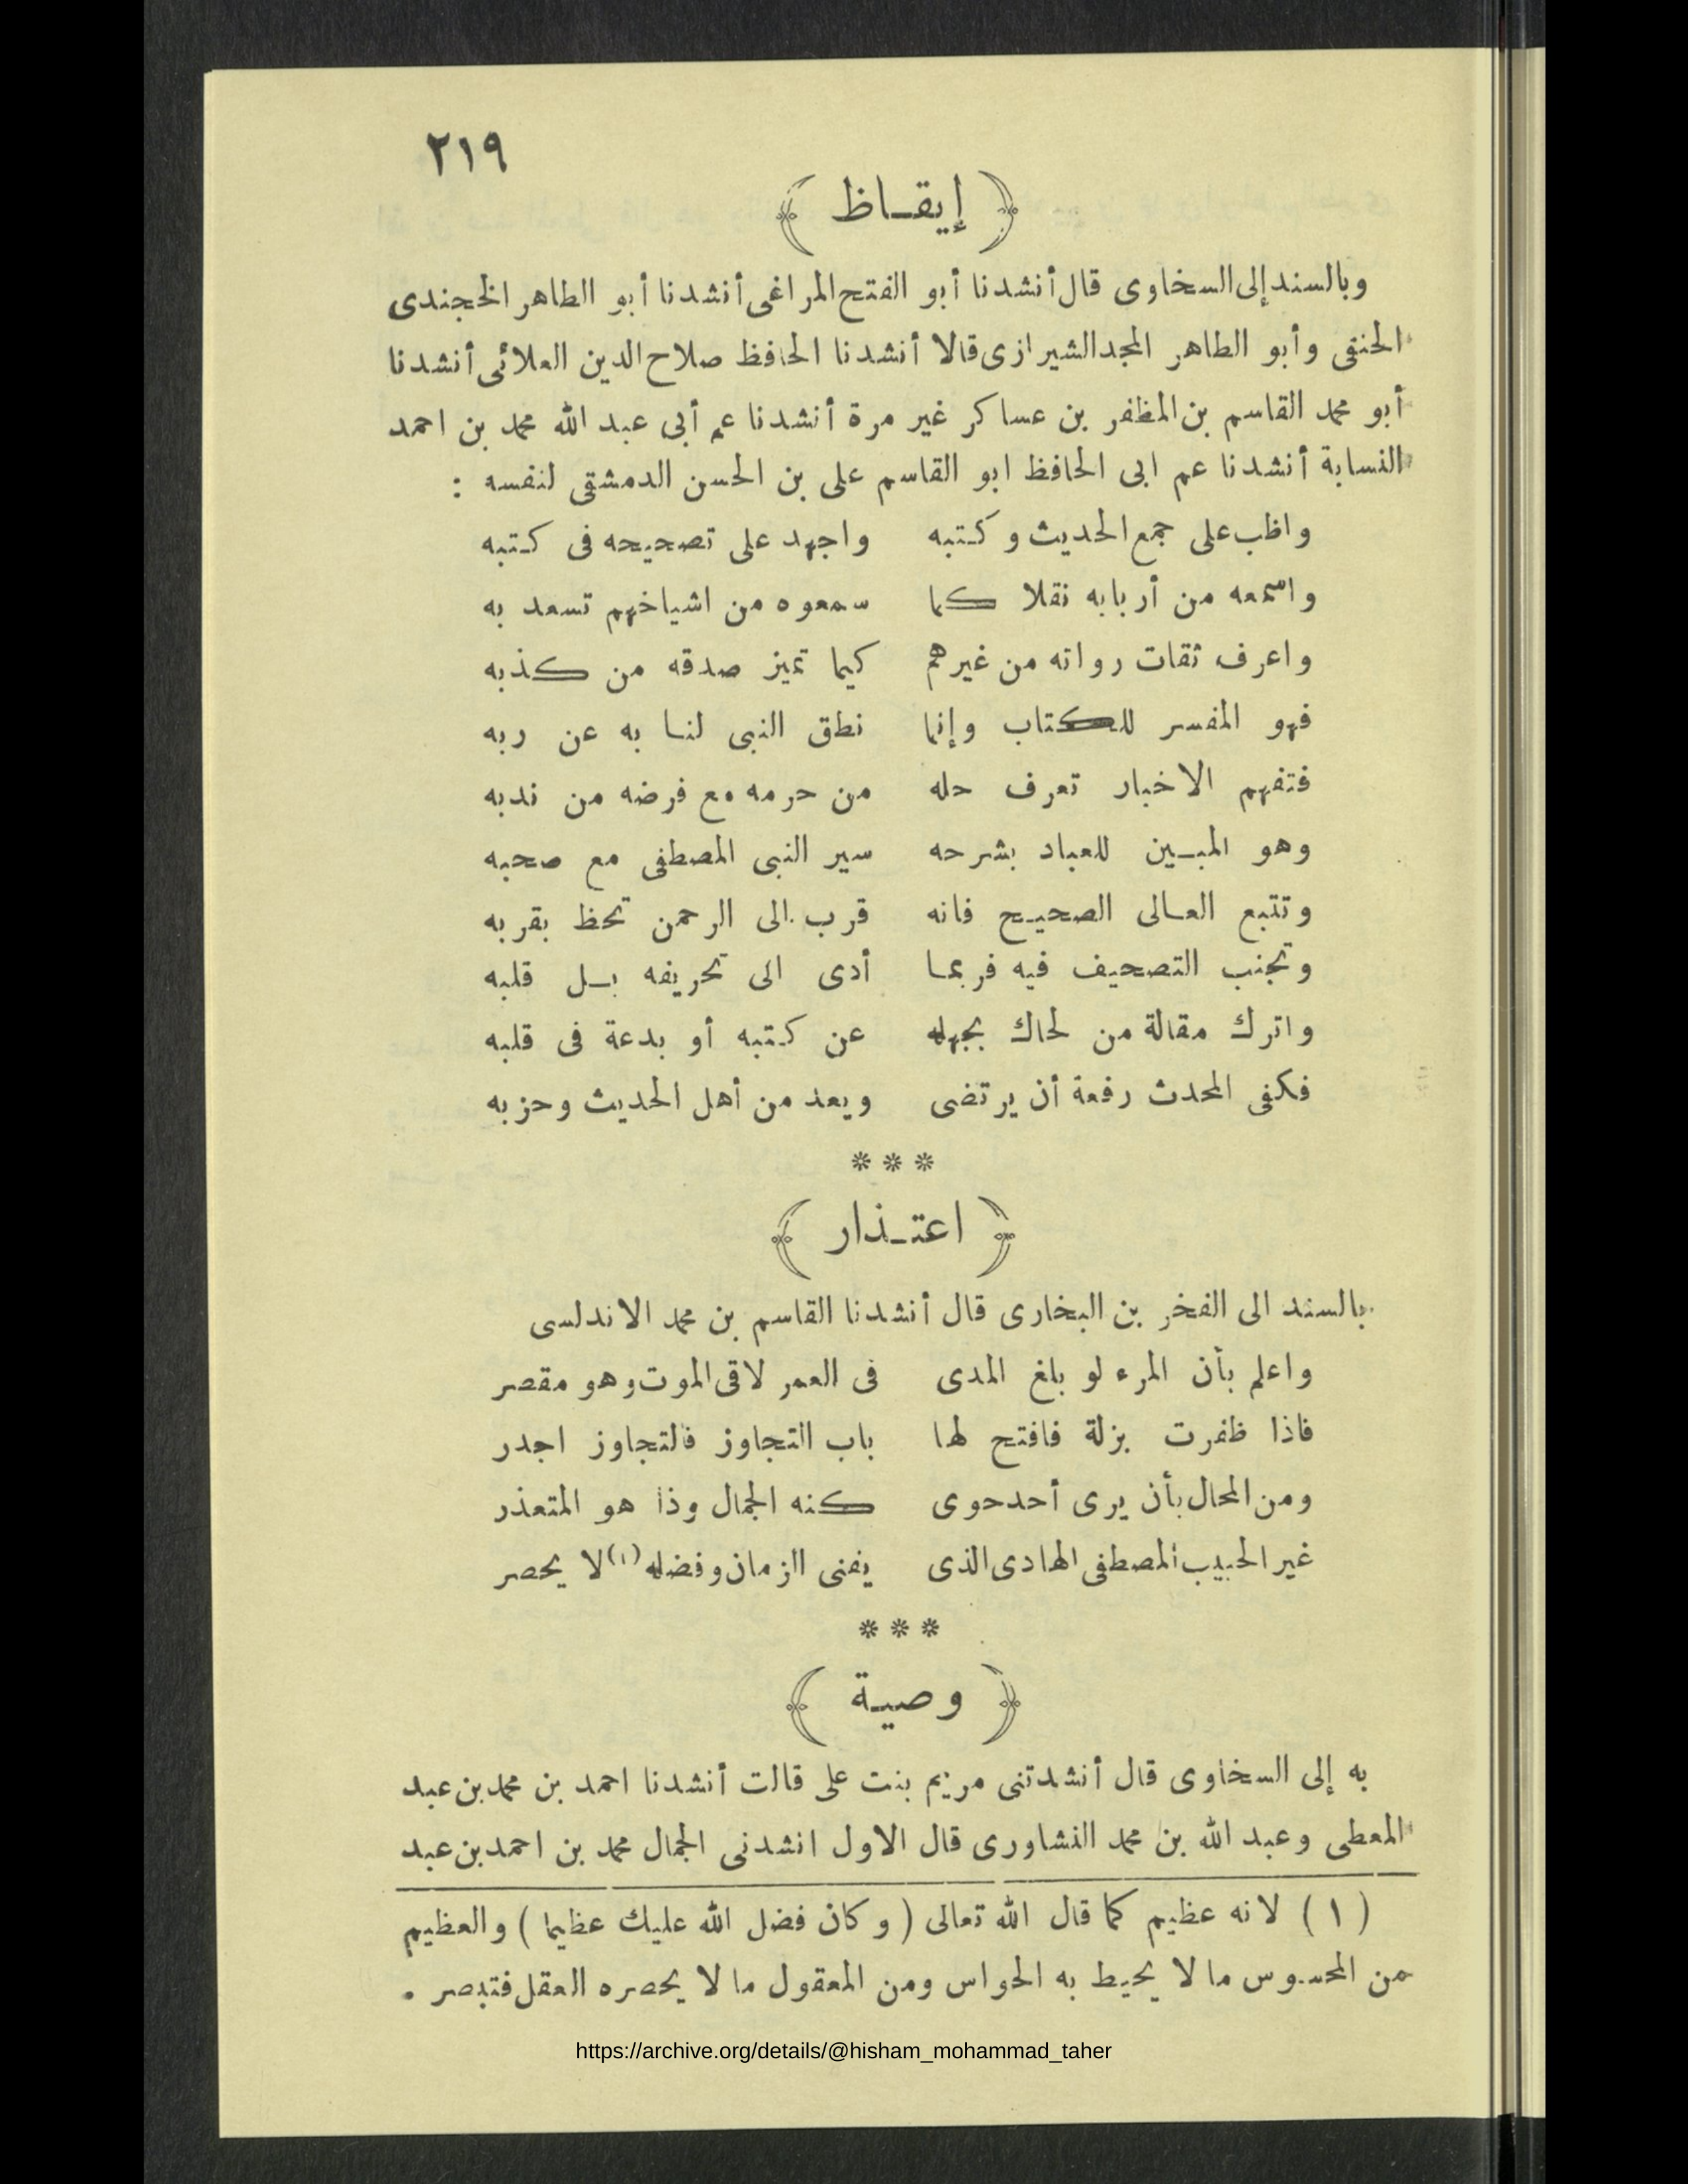 ٢١٩
﴿ إيقـاظ ﴾
وبالسند إلى السخاوى قال أنشدنا أبو الفتح المراغى أنشدنا أبو الطاهر الخجندى
الحنفى وأبو الطاهر المجد الشيرازى قالا أنشدنا الحافظ صلاح الدين العلائى أنشدنا
أبو محمد القاسم بن المظفر بن عساكر غير مرة أنشدنا عم أبى عبد الله محمد بن احمد
النسابة أنشدنا عم ابى الحافظ ابو القاسم على بن الحسن الدمشقى لنفسه :
واظب على جمع الحديث وكتبه واجهد على تصحيحه فى كتبه
واسمعه من أربابه نقلا كما سمعوه من اشياخهم تسعد به
واعرف ثقات رواته من غيرهم كيما تميز صدقه من كذبه
فهو المفسر للكتاب وإنما نطق النبى لنا به عن ربه
فتفهم الاخبار تعرف حله من حرمه مع فرضه من ندبه
وهو المبـين للعباد بشرحه سير النبى المصطفى مع صحبه
وتتبع العالى الصحيح فانه قرب الى الرحمن تحظ بقربه
وتجنب التصحيف فيه فربما أدى الى تحريفه بـل قلبه
واترك مقالة من لحاك بجهله عن كتبه أو بدعة فى قلبه
فكفى المحدث رفعة أن يرتضى ويعد من أهل الحديث وحزبه
* * *
﴿ اعتـذار ﴾
بالسند الى الفخر بن البخارى قال أنشدنا القاسم بن محمد الاندلسى
واعلم بأن المرء لو بلغ المدى فى العمر لاقى الموت وهو مقصر
فاذا ظفرت بزلة فافتح لها باب التجاوز فالتجاوز اجدر
ومن المحال بأن يرى أحد حوى كنه الجمال وذا هو المتعذر
غير الحبيب المصطفى الهادى الذى يفنى الزمان وفضله (١) لا يحصر
* * *
﴿ وصيـة ﴾
به إلى السخاوى قال أنشدتنى مريم بنت على قالت أنشدنا احمد بن محمد بن عبد
المعطى وعبد الله بن محمد النشاورى قال الاول انشدنى الجمال محمد بن احمد بن عبد
( ١ ) لانه عظيم كما قال الله تعالى ( وكان فضل الله عليك عظيما ) والعظيم
من المحسوس ما لا يحيط به الحواس ومن المعقول ما لا يحصره العقل فتبصر .
https://archive.org/details/@hisham_mohammad_taher